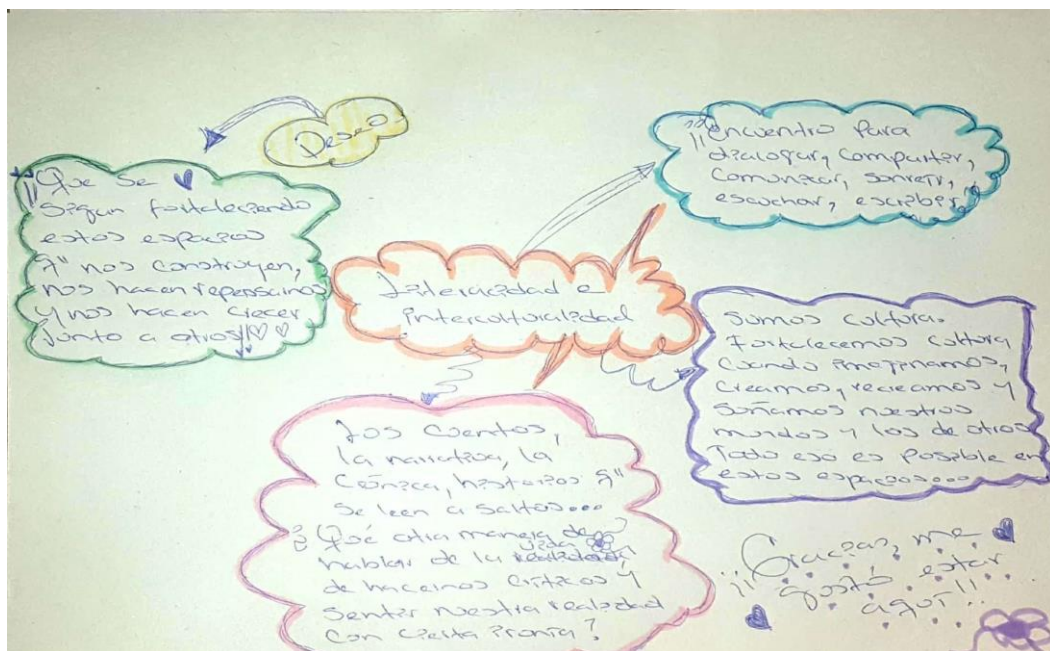 Deseo
¡¡Que se
sigan fortaleciendo
estos espacios
q" nos construyen,
nos hacen repensarnos
y nos hacen crecer
junto a otros!!
Literacidad e
interculturalidad
¡¡Encuentro para
dialogar, compartir,
comunicar, sonreír,
escuchar, escribir!!
Somos cultura.
Fortalecemos cultura
cuando imaginamos,
creamos, recreamos y
soñamos nuestros
mundos y los de otros
Todo eso es posible en
estos espacios...
Los cuentos,
la narrativa, la
crónica, historias q"
se leen a saltos...
¿Qué otra manera de
hablar de la vida
de hacernos críticos y
sentir nuestra realidad
con cierta ironía?
¡¡Gracias, me
gustó estar
aquí!!